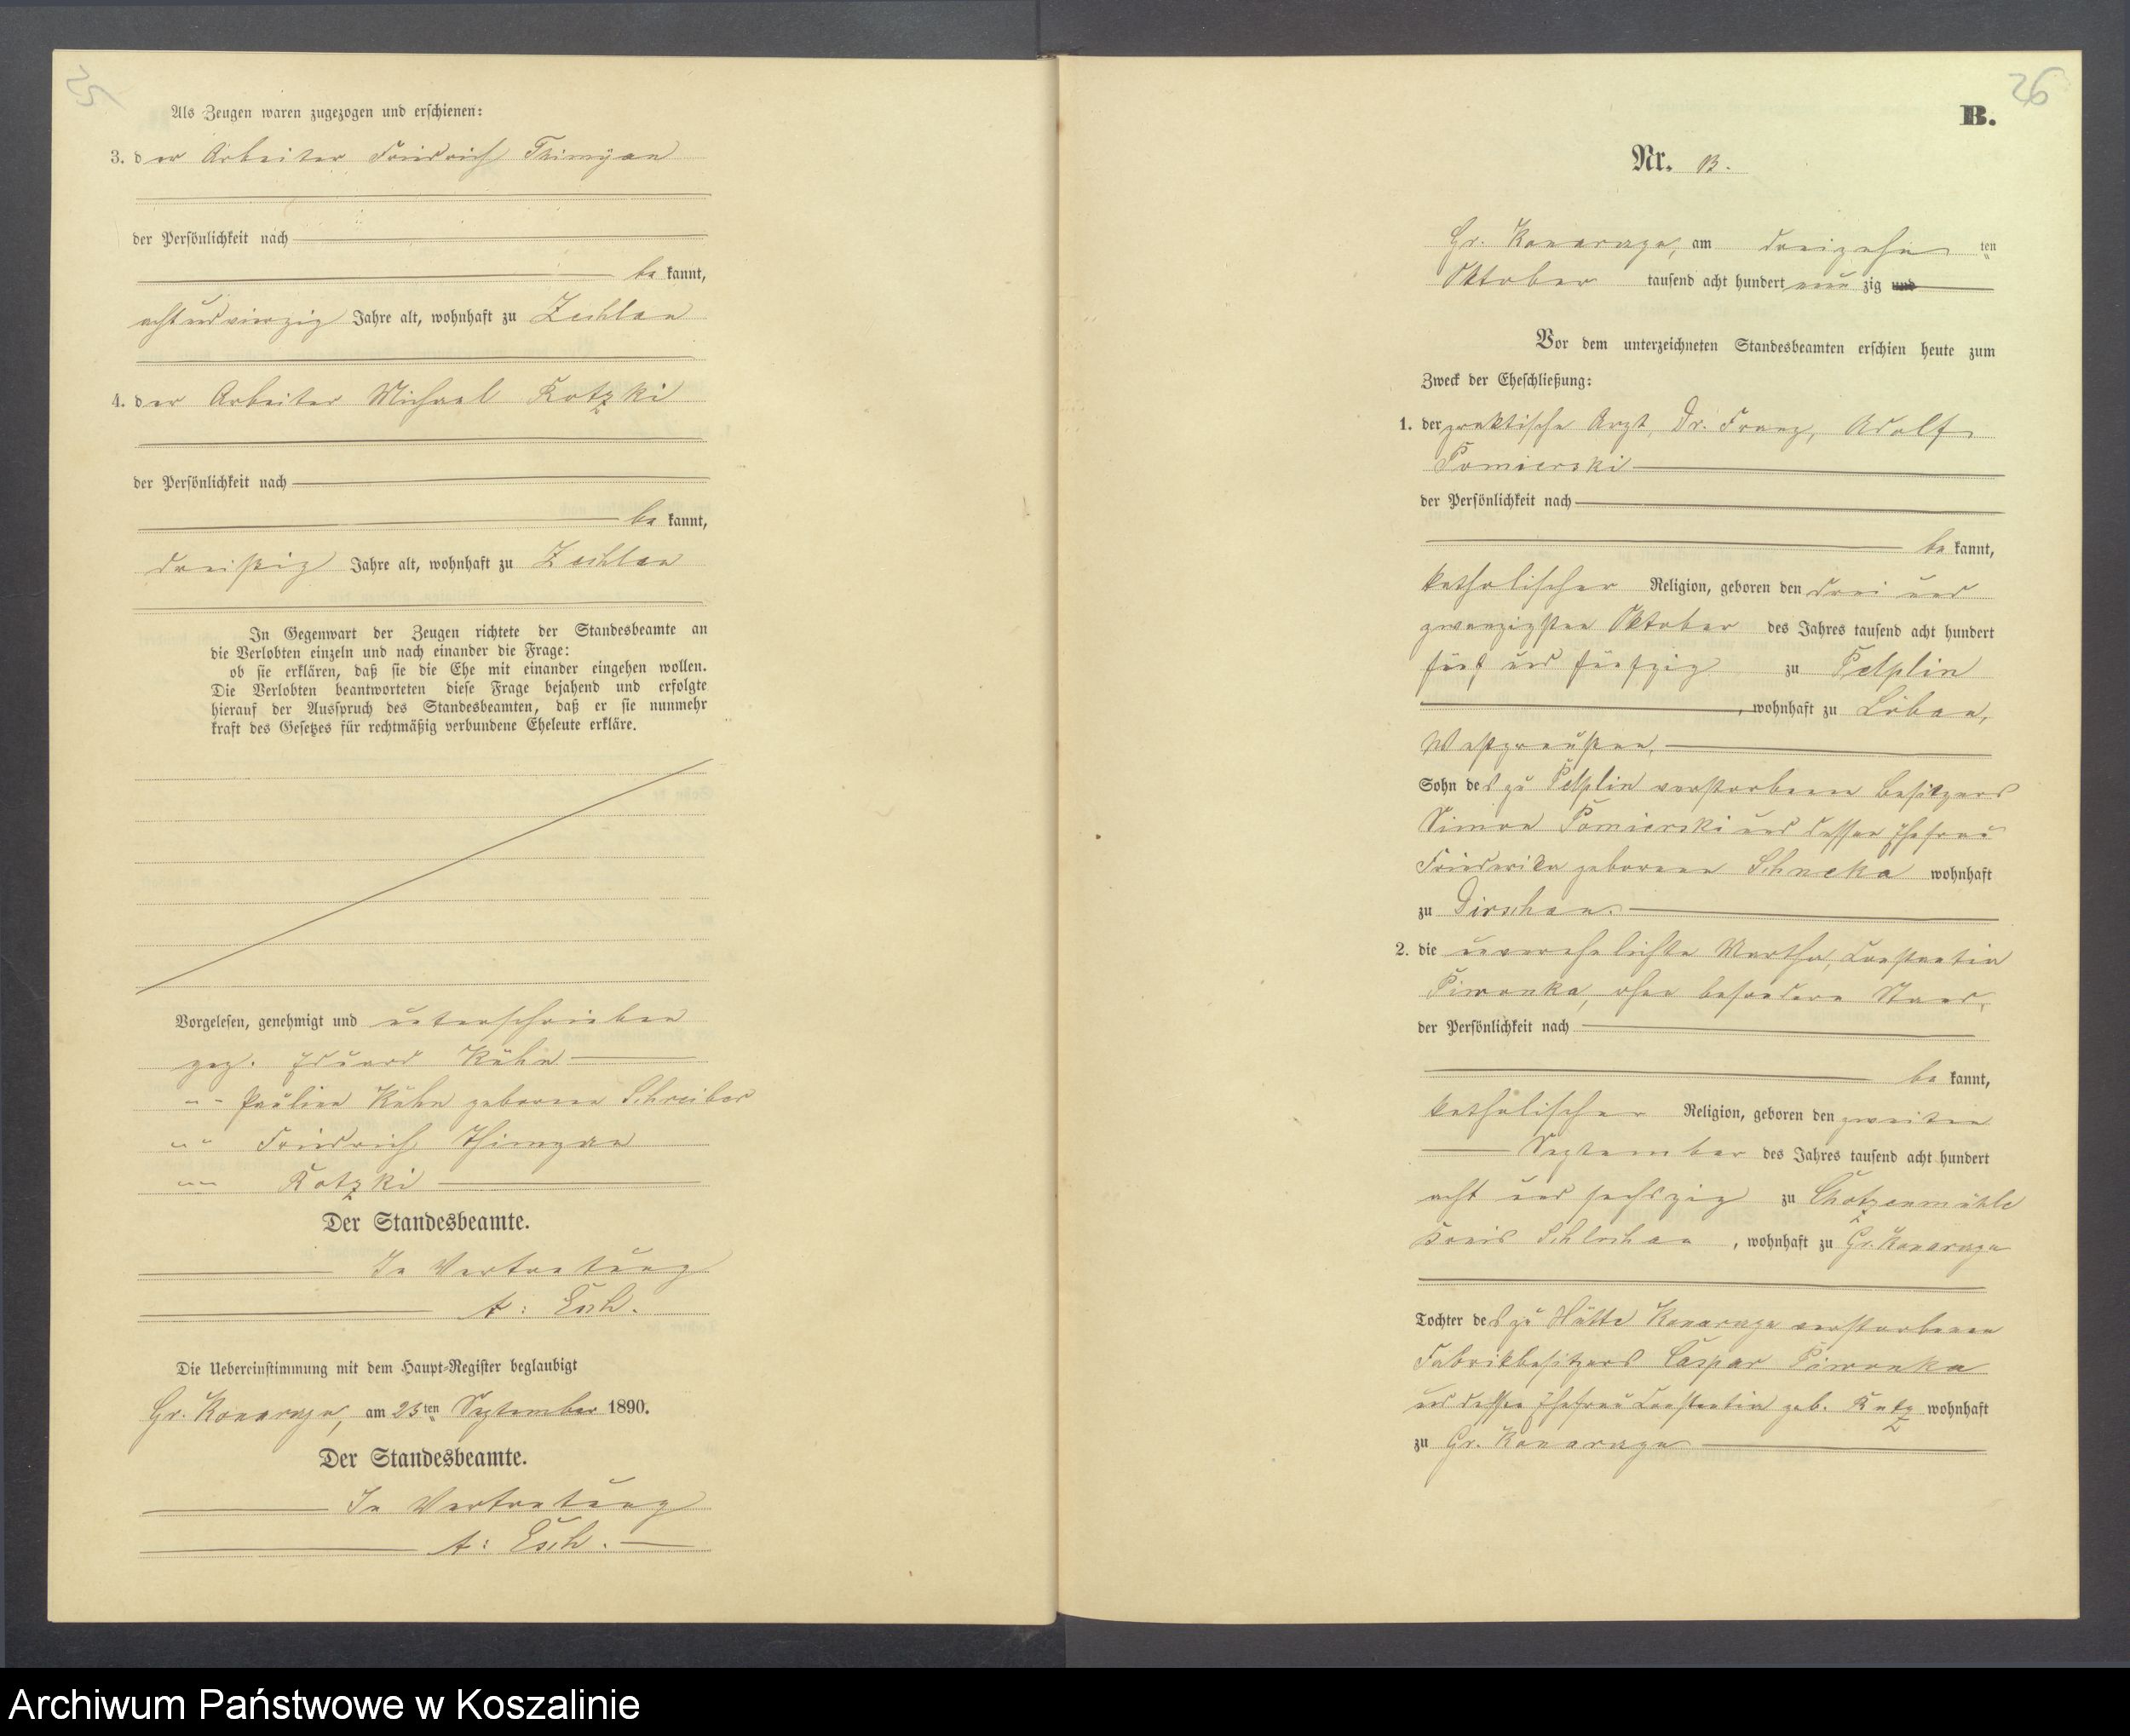 25
Als Zeugen waren zugezogen und erschienen:
3. der Arbeiter Friedrich Thimÿan
der Persönlichkeit nach
be kannt,
acht und vierzig Jahre alt, wohnhaft zu Zechlau
4. der Arbeiter Michael Kotzki
der Persönlichkeit nach
be kannt,
dreißig Jahre alt, wohnhaft zu Zechlau
In Gegenwart der Zeugen richtete der Standesbeamte an
die Verlobten einzeln und nach einander die Frage:
ob sie erklären, daß sie die Ehe mit einander eingehen wollen.
Die Verlobten beantworteten diese Frage bejahend und erfolgte
hierauf der Ausspruch des Standesbeamten, daß er sie nunmehr
kraft des Gesetzes für rechtmäßig verbundene Eheleute erkläre.
Vorgelesen, genehmigt und unterschrieben
gez. Eduard Kühn
" " Pauline Kühn geborene Schreiber
" " Friedrich Thimyan
" " Kotzki
Der Standesbeamte.
In Vertretung
Esch.
Die Uebereinstimmung mit dem Haupt-Register beglaubigt
Gr. Konarzyn, am 23ten September 1890.
Der Standesbeamte.
In Vertretung
Esch.
26
B.
Nr. 13.
Gr. Konarzyn, am dreizehn ten
Oktober tausend acht hundert neun zig und
Vor dem unterzeichneten Standesbeamten erschien heute zum
Zweck der Eheschließung:
1. der praktische Arzt, Dr. Franz, Adolf
Pomierski
der Persönlichkeit nach
be kannt,
katholischer Religion, geboren den drei und
zwanzigsten Oktober des Jahres tausend acht hundert
fünf und fünfzig zu Pelplin
, wohnhaft zu Löbau,
Westpreußen,
Sohn des zu Pelplin verstorbenen Besitzers
Simon Pomierski und dessen Ehefrau
Friederike geborene wohnhaft
zu Dirschau.
2. die unverehelichte Martha, Constantia
Piwonka, ohne besondern Stand,
der Persönlichkeit nach
be kannt,
katholischer Religion, geboren den zweiten
September des Jahres tausend acht hundert
acht und sechszig zu Chotzenmühle
Kreis Schlochau, wohnhaft zu Gr. Konarzyn
Tochter des zu Hütte Konarzyn verstorbenen
Fabrikbesitzers Caspar Piwonka
und dessen Ehefrau Constantia geb. wohnhaft
zu Gr. Konarzyn
Archiwum Państwowe w Koszalinie